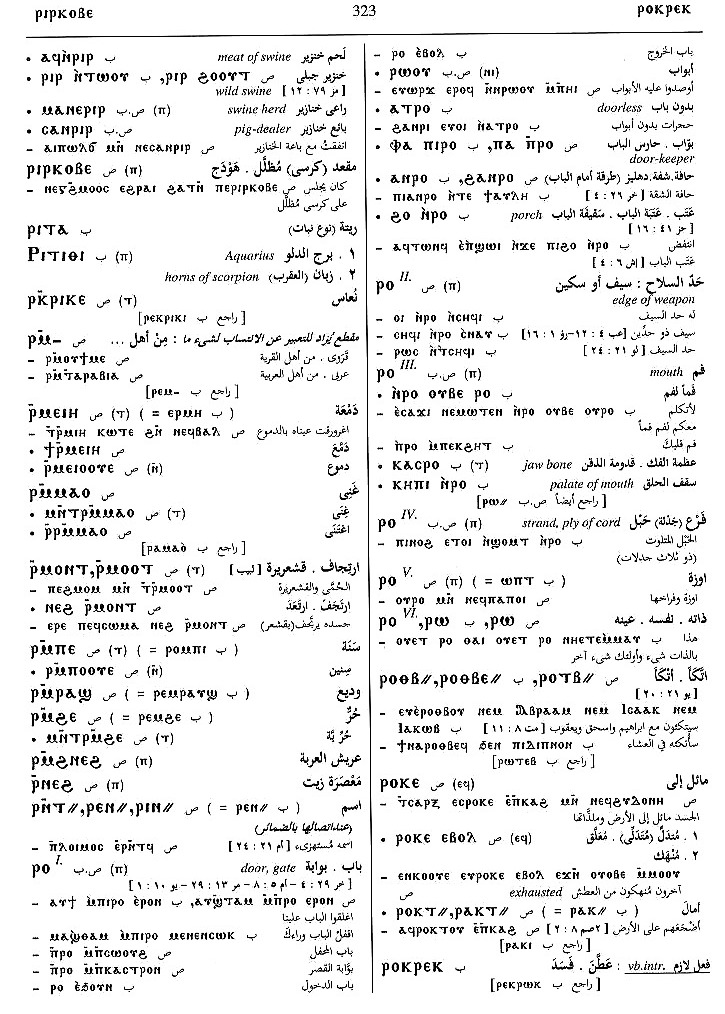 ⲣⲓⲣⲕⲟⲃⲉ
323
ⲣⲟⲕⲣⲉⲕ
• ⲁϥⲛ̀ⲣⲓⲣ ب meat of swine لَحم خنزير
• ⲣⲓⲣ ⲛ̀ⲧⲱⲟⲩ ب, ⲣⲓⲣ ϩⲟⲟⲩⲧ ص خنزير جبلى
wild swine [ مز ٧٩ : ١٢ ]
• ⲙⲁⲛⲉⲣⲓⲣ ص.ب (ⲡ) swine herd راعى خنازير
• ⲥⲁⲛⲣⲓⲣ ص.ب pig-dealer بائع خنازير
– ⲁⲓⲡⲱⲗϭ ⲙⲛ̄ ⲛⲉⲥⲁⲛⲣⲓⲣ ص اتفقتُ مع باعة الخنازير
ⲣⲓⲣⲕⲟⲃⲉ ص (ⲡ) مقعد (كرسى) مُظلَّل . هَوْدَج
– ⲛⲉϥϩⲙⲟⲟⲥ ⲉϩⲣⲁⲓ ϩⲁⲧⲛ̄ ⲡⲉⲣⲓⲣⲕⲟⲃⲉ ص كان يجلس
على كرسى مُظلَّل
ⲣⲓⲧⲁ ب ريتة (نوع نبات)
Ⲣⲓⲧⲓⲑⲓ ب (ⲡ) Aquarius ١ . برج الدلو
horns of scorpion ٢ . زبان (العقرب)
ⲣⲕ̄ⲣⲓⲕⲉ ص (ⲧ) نُعاس
[ⲣⲉⲕⲣⲓⲕⲓ ب راجع]
ⲣⲙ̄– ص مقطع يُزاد للتعبير عن الانتساب لشىء ما : مِنْ أهل ...
– ⲣⲙ̄ⲟⲩϯⲙⲉ ص قَرَوى . من أهل القرية
– ⲣⲙ̄ⲧⲁⲣⲁⲃⲓⲁ ص عربى . من أهل العربية
[ⲣⲉⲙ– ب راجع]
ⲣⲙ̄ⲉⲓⲏ ص (ⲧ) ( = ⲉⲣⲙⲏ ب ) دَمْعَة
– ⲧⲣ̄ⲙⲓⲏ ⲕⲱⲧⲉ ϩⲛ̄ ⲛⲉϥⲃⲁⲗ ص اغرورقت عيناه بالدموع
• ϯⲣ̄ⲙⲉⲓⲏ ص دَمَّعَ
• ⲣ̄ⲙⲉⲓⲟⲟⲩⲉ ص (ⲛ̄) دموع
ⲣⲙ̄ⲙⲁⲟ ص غَنِى
• ⲙⲛ̄ⲧⲣⲙ̄ⲙⲁⲟ ص (ⲧ) غِنًى
• ⲣ̄ⲣⲙ̄ⲙⲁⲟ ص اغتَنَى
[ⲣⲁⲙⲁⲟ̀ ب راجع]
ⲣⲙ̄ⲙⲟⲛⲧ,ⲣⲙ̄ⲟⲟⲩⲧ ص (ⲧ) ارتجاف . قشعريرة [لبيب]
– ⲡⲉϩⲙⲟⲙ ⲙⲛ̄ ⲧⲣ̄ⲙⲟⲟⲧ ص الحُمَّى والقشعريرة
• ⲛⲉϩ ⲣ̄ⲙⲟⲛⲧ ص ارتجَفَ . ارتَعَدَ
– ⲉⲣⲉ ⲡⲉϥⲥⲱⲙⲁ ⲛⲉϩ ⲣ̄ⲙⲟⲛⲧ ص جسده يرتجف(يقشعر)
ⲣⲙ̄ⲡⲉ ص (ⲧ) ( = ⲣⲟⲙⲡⲓ ب ) سَنَة
• ⲣⲙ̄ⲡⲟⲟⲩⲉ ص (ⲛ̄) سِنين
ⲣⲙ̄ⲣⲁϣ ص ( = ⲣⲉⲙⲣⲁⲩϣ ب ) وديع
ⲣⲙ̄ϩⲉ ص ( = ⲣⲉⲙϩⲉ ب ) حُرٌّ
• ⲙⲛ̄ⲧⲣⲙ̄ϩⲉ ص (ⲧ) حُرِّيَّة
ⲣⲙ̄ϩⲛⲉϩ ص (ⲡ) عريش العربة
ⲣ̄ⲛⲉϩ ص (ⲡ) مَعْصَرَة زيت
ⲣⲛ̄ⲧ⫽,ⲣⲉⲛ⫽,ⲣⲓⲛ⫽ ص ( = ⲣⲉⲛ⫽ ب ) اسم
(عنداتصالها بالضمائر)
– ⲡ̄ⲗⲟⲓⲙⲟⲥ ⲉⲣⲛ̄ⲧϥ ص اسمه مُستهزىء [ أم ٢١ : ٢٤ ]
ⲣⲟ I. ص.ب (ⲡ) door, gate باب . بوابة
[ مر ٢٩ : ٤ – أم ٥ : ٨ – مر ١٣ : ٢٩ – يو ١٠ : ١ ]
– ⲁⲩϯ ⲙ̀ⲡⲓⲣⲟ ⲉⲣⲟⲛ ب ,ⲁⲩϣⲧⲁⲙ ⲙ̄ⲡⲣⲟ ⲉⲣⲟⲛ ص
اغلقوا الباب علينا
– ⲙⲁϣⲑⲁⲙ ⲙ̀ⲡⲓⲣⲟ ⲙⲉⲛⲉⲛⲥⲱⲕ ب اقفل الباب وراءك
– ⲡ̄ⲣⲟ ⲙ̄ⲡⲥⲱⲟⲩϩ ص باب المحفل
– ⲡ̄ⲣⲟ ⲙ̄ⲡⲕⲁⲥⲧⲣⲟⲛ ص بوَّابة القصر
– ⲣⲟ ⲉ̀ϧⲟⲩⲛ ب باب الدخول
– ⲣⲟ ⲉ̀ⲃⲟⲗ ب باب الخروج
• ⲣⲱⲟⲩ ص.ب (ⲛⲓ) أبواب
– ⲉⲩⲱⲣϫ ⲉⲣⲟϥ ⲛ̄ⲛⲣⲱⲟⲩ ⲙ̄ⲡⲏⲓ ص أوصدوا عليه الأبواب
• ⲁⲧⲣⲟ ب doorless بدون باب
– ϩⲁⲛⲣⲓ ⲉⲩⲟⲓ ⲛ̀ⲁⲧⲣⲟ ب حجرات بدون أبواب
• ⲫⲁ ⲡⲓⲣⲟ ب ,ⲡⲁ ⲡ̄ⲣⲟ ص بوَّاب . حارس الباب
door-keeper
• ⲁⲛⲣⲟ ب ,ϩⲁⲛⲣⲟ ص حافة.شفة.دهليز (طرقة أمام الباب)
– ⲡⲓⲁⲛⲣⲟ ⲛ̀ⲧⲉ ϯⲁⲩⲗⲏ ب حافة الشقة [ خر ٢٦ : ٤ ]
• ϩⲟ ⲛ̀ⲣⲟ ب porch عَتَب . عَتَبَة الباب . سَقيفَة الباب
[ حز ٤١ : ١٦ ]
– ⲁϥⲧⲱⲛϥ ⲉ̀ⲡϣⲱⲓ ⲛ̀ϫⲉ ⲡⲓϩⲟ ⲛ̀ⲣⲟ ب انتفض
عَتَب الباب [ إش ٦ : ٤ ]
ⲣⲟ II. ص (ⲡ) حَدّ السلاح : سيف أو سكين
edge of weapon
– ⲟⲓ ⲛ̀ⲣⲟ ⲛ̀ⲥⲏϥⲓ ب له حد السيف
– ⲥⲏϥⲓ ⲛ̀ⲣⲟ ⲥ̀ⲛⲁⲩ ب سيف ذو حدَّين [عب ٤ : ١٢–رؤ ١ : ١٦]
– ⲣⲱⲥ ⲛ̀ⲧ̀ⲥⲏϥⲓ ب حد السيف [ لو ٢١ : ٢٤ ]
ⲣⲟ III. ص.ب (ⲡ) mouth فم
• ⲛ̀ⲣⲟ ⲟⲩⲃⲉ ⲣⲟ ب فَماً لفم
– ⲉ̀ⲥⲁϫⲓ ⲛⲉⲙⲱⲧⲉⲛ ⲛ̀ⲣⲟ ⲟⲩⲃⲉ ⲟⲩⲣⲟ ب لأتكلم
معكم لفم فماً
– ⲛ̀ⲣⲟ ⲙ̀ⲡⲉⲕϩⲏⲧ ب فم قلبك
• ⲕⲁⲥⲣⲟ ب (ⲧ) jaw bone عظمة الفك . قدومة الذقن
• ⲕⲏⲡⲓ ⲛ̀ⲣⲟ ب palate of mouth سقف الحلق
[ⲣⲱ⫽ ص.ب راجع أيضاً]
ⲣⲟ IV. ص.ب (ⲡ) strand, ply of cord فَرْع (جَدْلة) حَبْل
– ⲡⲓⲛⲟϩ ⲉⲧⲟⲓ ⲛ̀ϣⲟⲙⲧ ⲛ̀ⲣⲟ ب الحَبْل المثلوث
(ذو ثلاث جدلات)
ⲣⲟ V. ص (ⲡ) ( = ⲱⲡⲧ ب ) اوزة
– ⲟⲩⲣⲟ ⲙⲛ̄ ⲛⲉϥⲡⲁⲡⲟⲓ ص اوزة وفراخها
ⲣⲟ VI.,ⲣⲱ ب ,ⲣⲱ ص ذاته . نفسه . عينه
– ⲟⲩⲉⲧ ⲣⲟ ⲟⲁⲓ ⲟⲩⲉⲧ ⲣⲟ ⲛⲛⲉⲧⲉⲙ̀ⲙⲁⲩ ب هذا
بالذات شىء وأولئك شىء آخر
ⲣⲟⲑⲃ⫽,ⲣⲟⲑⲃⲉ⫽ ب ,ⲣⲟⲧⲃ⫽ ص اتَّكَأ . أتْكَأ
[ يو ٢١ : ٢٠ ]
– ⲉⲩⲉ̀ⲣⲟⲑⲃⲟⲩ ⲛⲉⲙ Ⲁⲃⲣⲁⲁⲙ ⲛⲉⲙ Ⲓⲥⲁⲁⲕ ⲛⲉⲙ
Ⲓⲁⲕⲱⲃ ب سيتكئون مع ابراهيم واسحق ويعقوب [ مت ٨ : ١١ ]
– ϯⲛⲁⲣⲟⲑⲃⲉϥ ϧⲉⲛ ⲡⲓⲇⲓⲡⲛⲟⲛ ب سأتكئه في العشاء
[ⲣⲱⲧⲉⲃ ب راجع]
ⲣⲟⲕⲉ ص (ⲉϥ) مائل إلى
– ⲧⲥⲁⲣⲝ ⲉⲥⲣⲟⲕⲉ ⲉⲡ̄ⲕⲁϩ ⲙⲛ̄ ⲛⲉϥϩⲩⲇⲟⲛⲏ ص
الجسد مائل إلى الأرض وملذَّاتها
• ⲣⲟⲕⲉ ⲉⲃⲟⲗ ص (ⲉϥ) ١ . مُتدَلٍّ (مُتدَلَّى) . مُعَلَّق
٢ . مُنْهَك
– ⲉⲛⲕⲟⲟⲩⲉ ⲉⲩⲣⲟⲕⲉ ⲉⲃⲟⲗ ⲉϫⲛ̄ ⲟⲩⲟⲃⲉ ⲙ̄ⲙⲟⲟⲩ
ص exhausted آخرون مُنهكون من العطش
• ⲣⲟⲕⲧ⫽,ⲣⲁⲕⲧ⫽ ص ( = ⲣⲁⲕ⫽ ب ) أمال
– ⲁϥⲣⲟⲕⲧⲟⲩ ⲉⲡ̄ⲕⲁϩ ص أضجَعَهم على الأرض [ ٢صم ٨ : ٢ ]
[ⲣⲁⲕⲓ ب راجع]
ⲣⲟⲕⲣⲉⲕ ب vb.intr. فعل لازم : عَطَّنَ . فَسَدَ
[ⲣⲉⲕⲣⲱⲕ ب راجع]